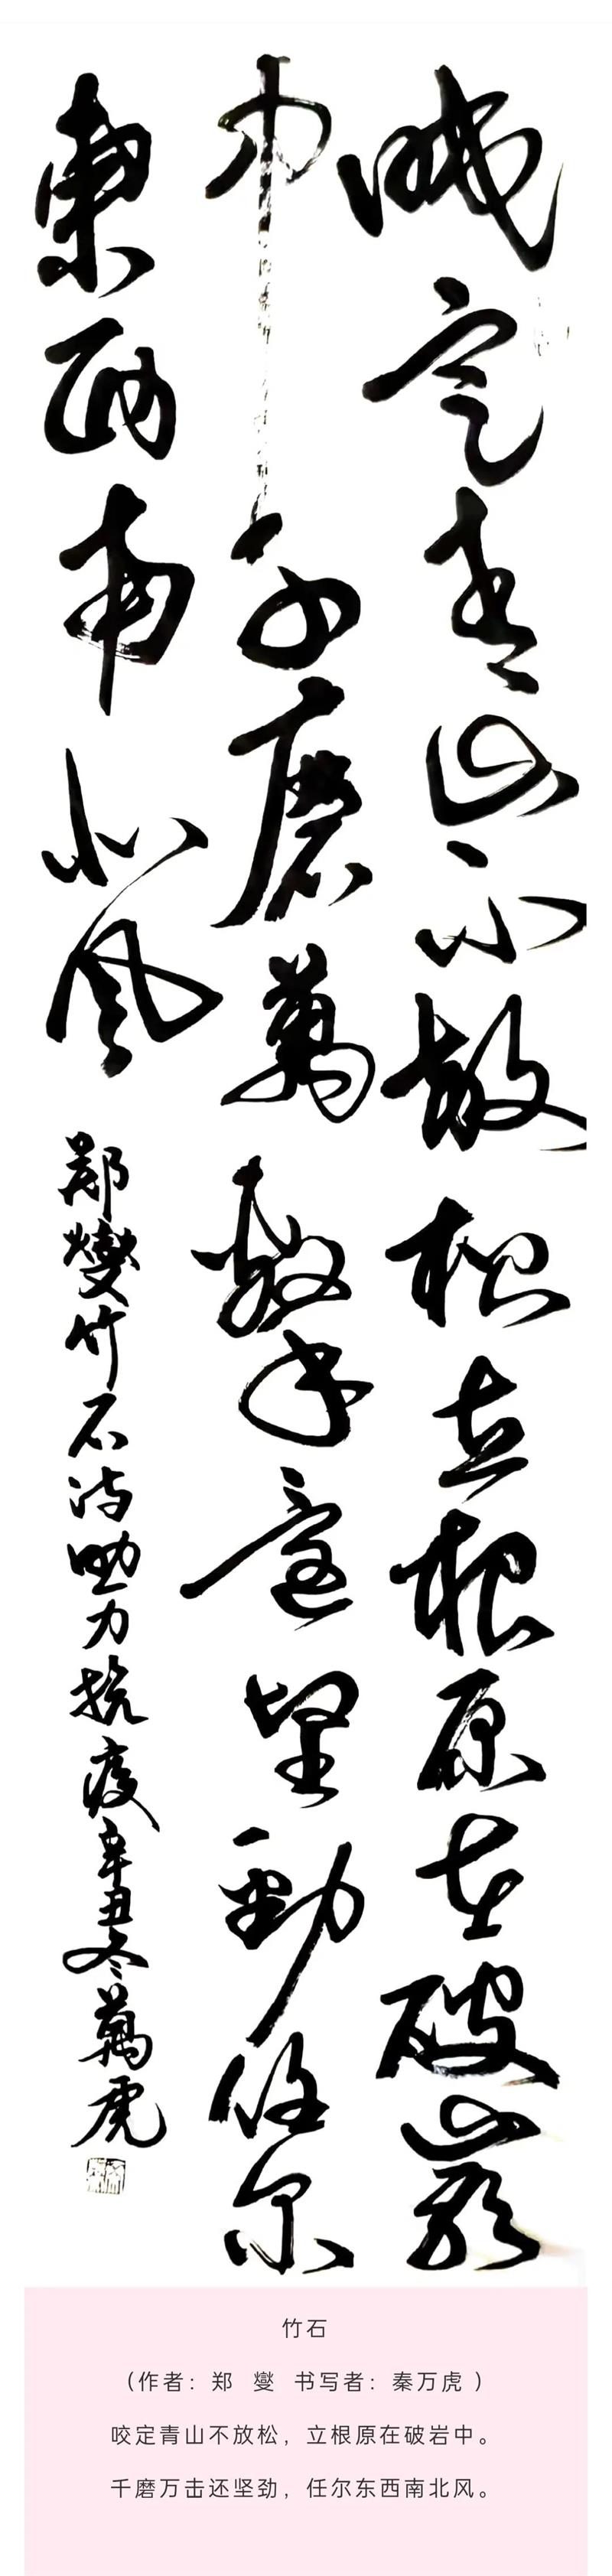 咬定青山不放松立根原在破巖
中千磨萬擊還堅勁任尔
東西南北风
鄭燮竹石诗助力抗疫辛丑冬萬虎
竹石
（作者：郑 燮 书写者：秦万虎 ）
咬定青山不放松，立根原在破岩中。
千磨万击还坚劲，任尔东西南北风。